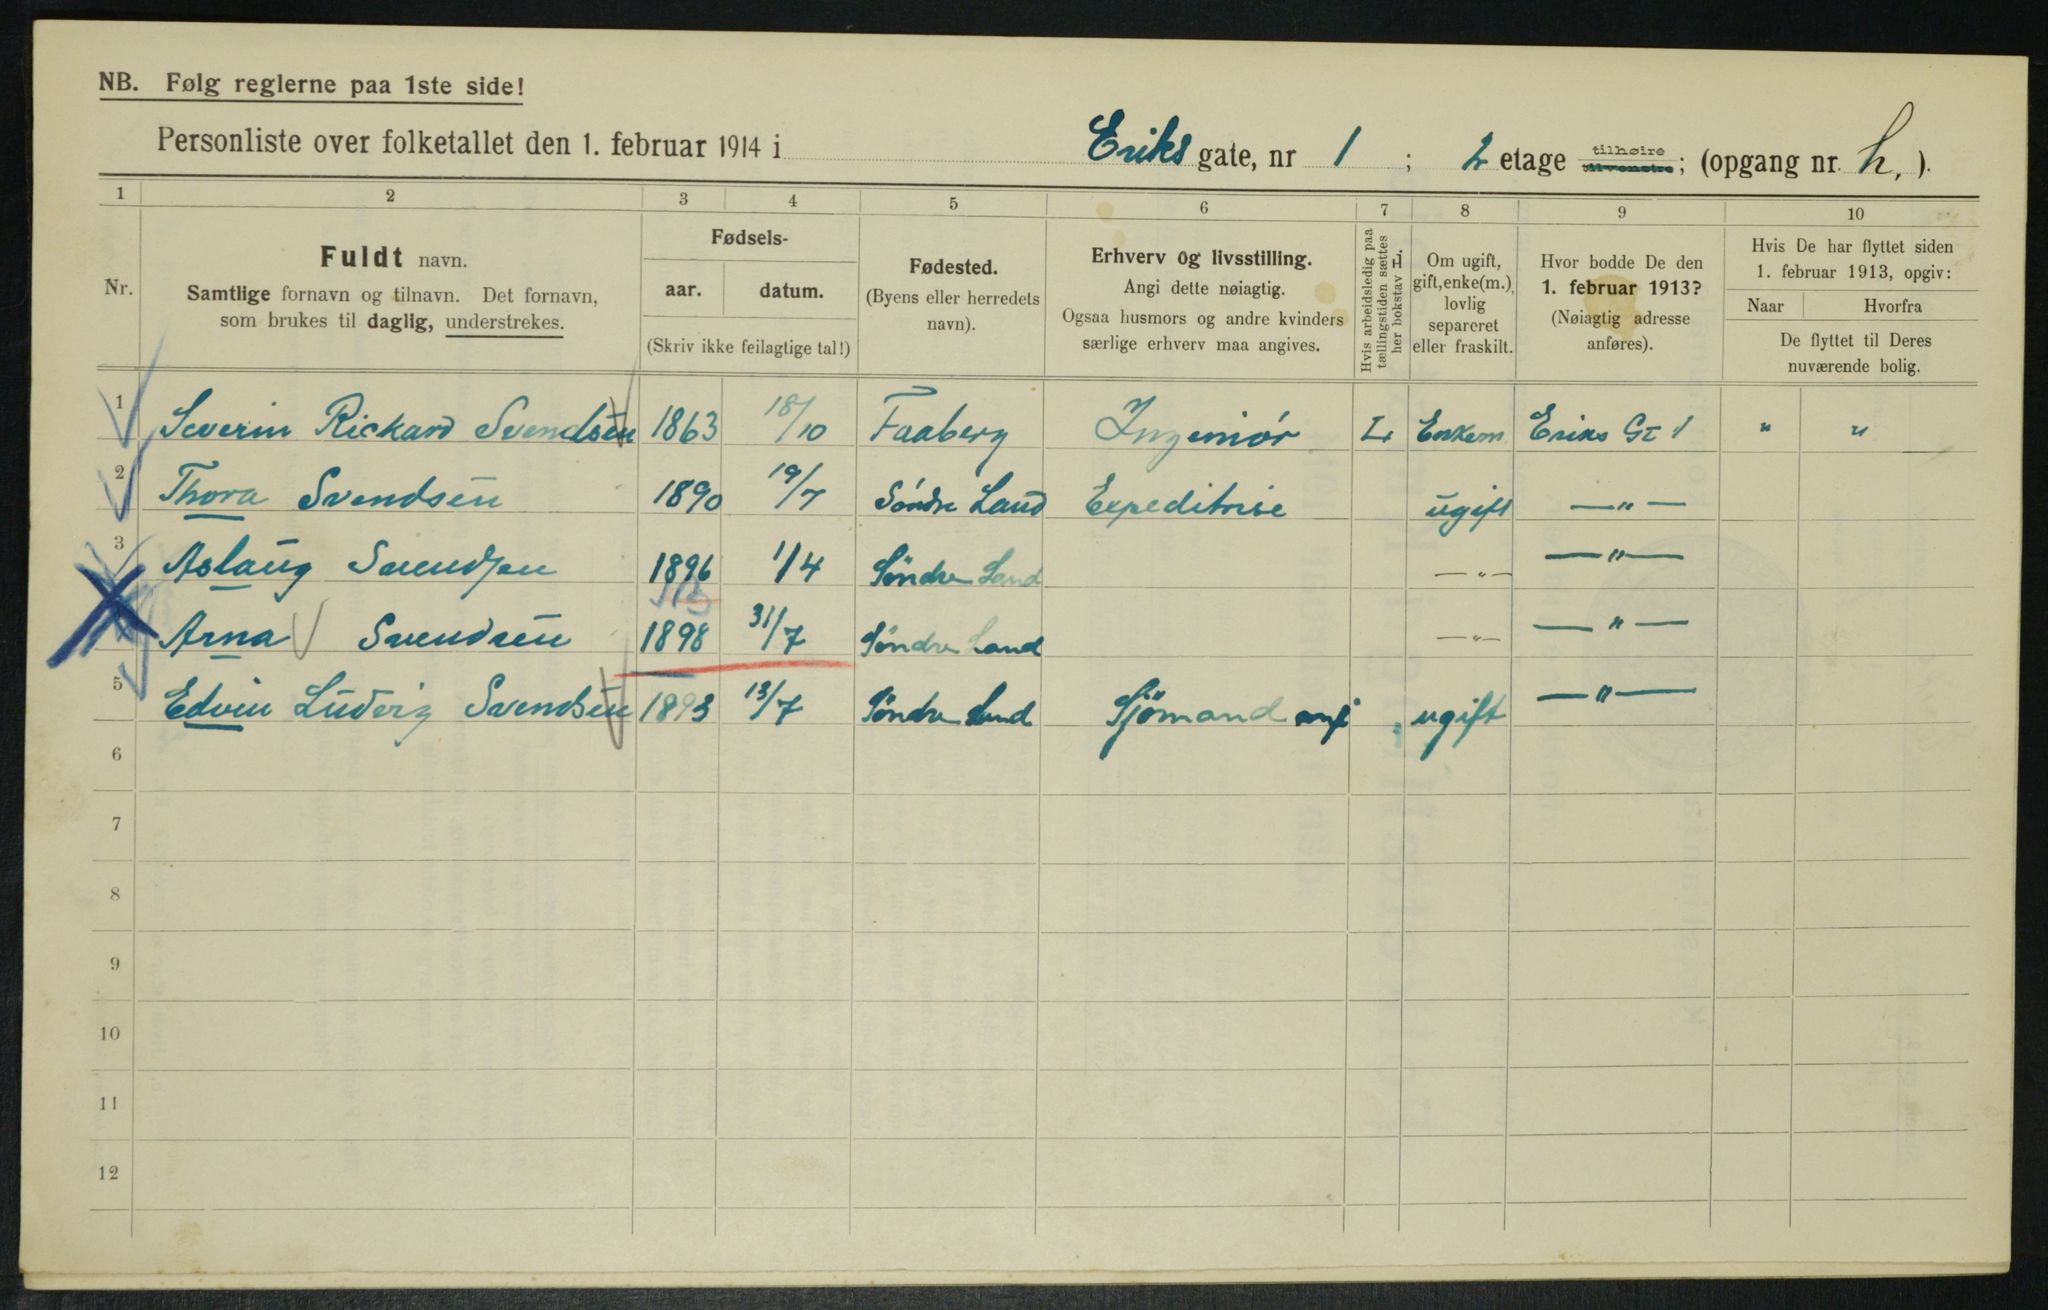 NB. Følg reglerne paa 1ste side!
Personliste over folketallet den 1. februar 1914 i Eriks gate, nr 1 ; 2 etage tilhøire tilvenstre; (opgang nr. h. ).
1 2 3 4 5 6 7 8 9 10
Nr.
Fuldt navn.
Samtlige fornavn og tilnavn. Det fornavn,
som brukes til daglig, understrekes.
Fødsels-
aar. datum.
(Skriv ikke feilagtige tal!)
Fødested.
(Byens eller herredets
navn).
Erhverv og livsstilling.
Angi dette nøiagtig.
Ogsaa husmors og andre kvinders
særlige erhverv maa angives.
Hvis arbeidsledig paa
tællingstiden sættes
her bokstav L.
Om ugift,
gift, enke(m.),
lovlig
separeret
eller fraskilt.
Hvor bodde De den
1. februar 1913?
(Nøiagtig adresse
anføres).
Hvis De har flyttet siden
1. februar 1913, opgiv:
Naar Hvorfra
De flyttet til Deres
nuværende bolig.
1 Severin Rickard Svendsen 1863 18/10 Faaberg Ingeniør L Enkem Eriks Gt 1 " "
2 Thora Svendsen 1890 19/7 Søndre Land Expeditrise ugift —"—
3 Aslaug Svendsen 1896 1/4 Søndre Land —"— —"—
Arna Svendsen 1898 31/7 Søndre Land —"— —"—
5 Edvin Ludvig Svendsen 1893 13/7 Søndre Land Sjömand ugift —"—
6
7
8
9
10
11
12